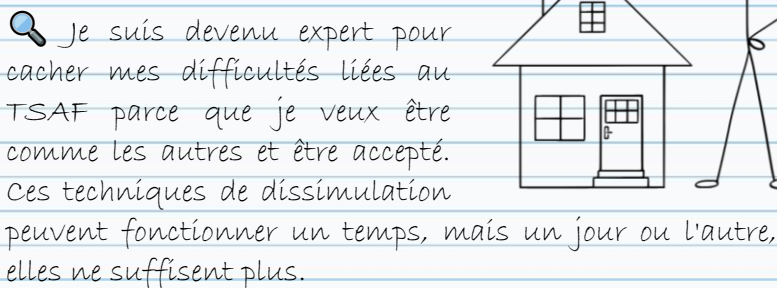 Je suis devenu expert pour
cacher mes difficultés liées au
TSAF parce que je veux être
comme les autres et être accepté.
Ces techniques de dissimulation
peuvent fonctionner un temps, mais un jour ou l'autre,
elles ne suffisent plus.